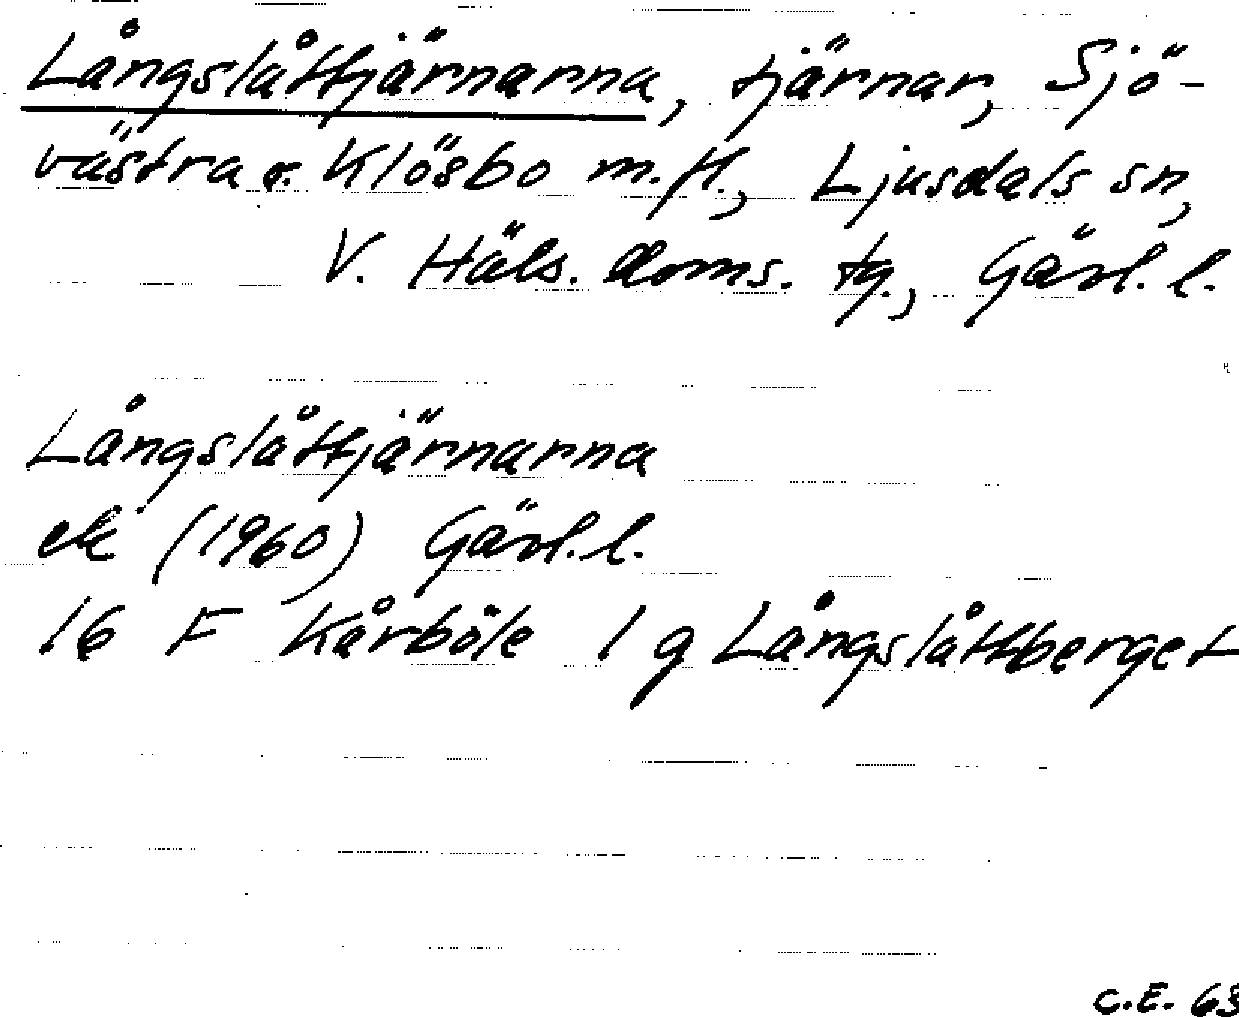 Långslåttjärnarna, tjärnar, Sjö-
västra o. Klösbo m.fl., Ljusdals sn,
V. Häls. doms. tg., Gävl. l.
Långslåttjärnarna
ek (1960) Gävl. l.
16 F Kårböle 1 g Långslåttberget
C.E. 63